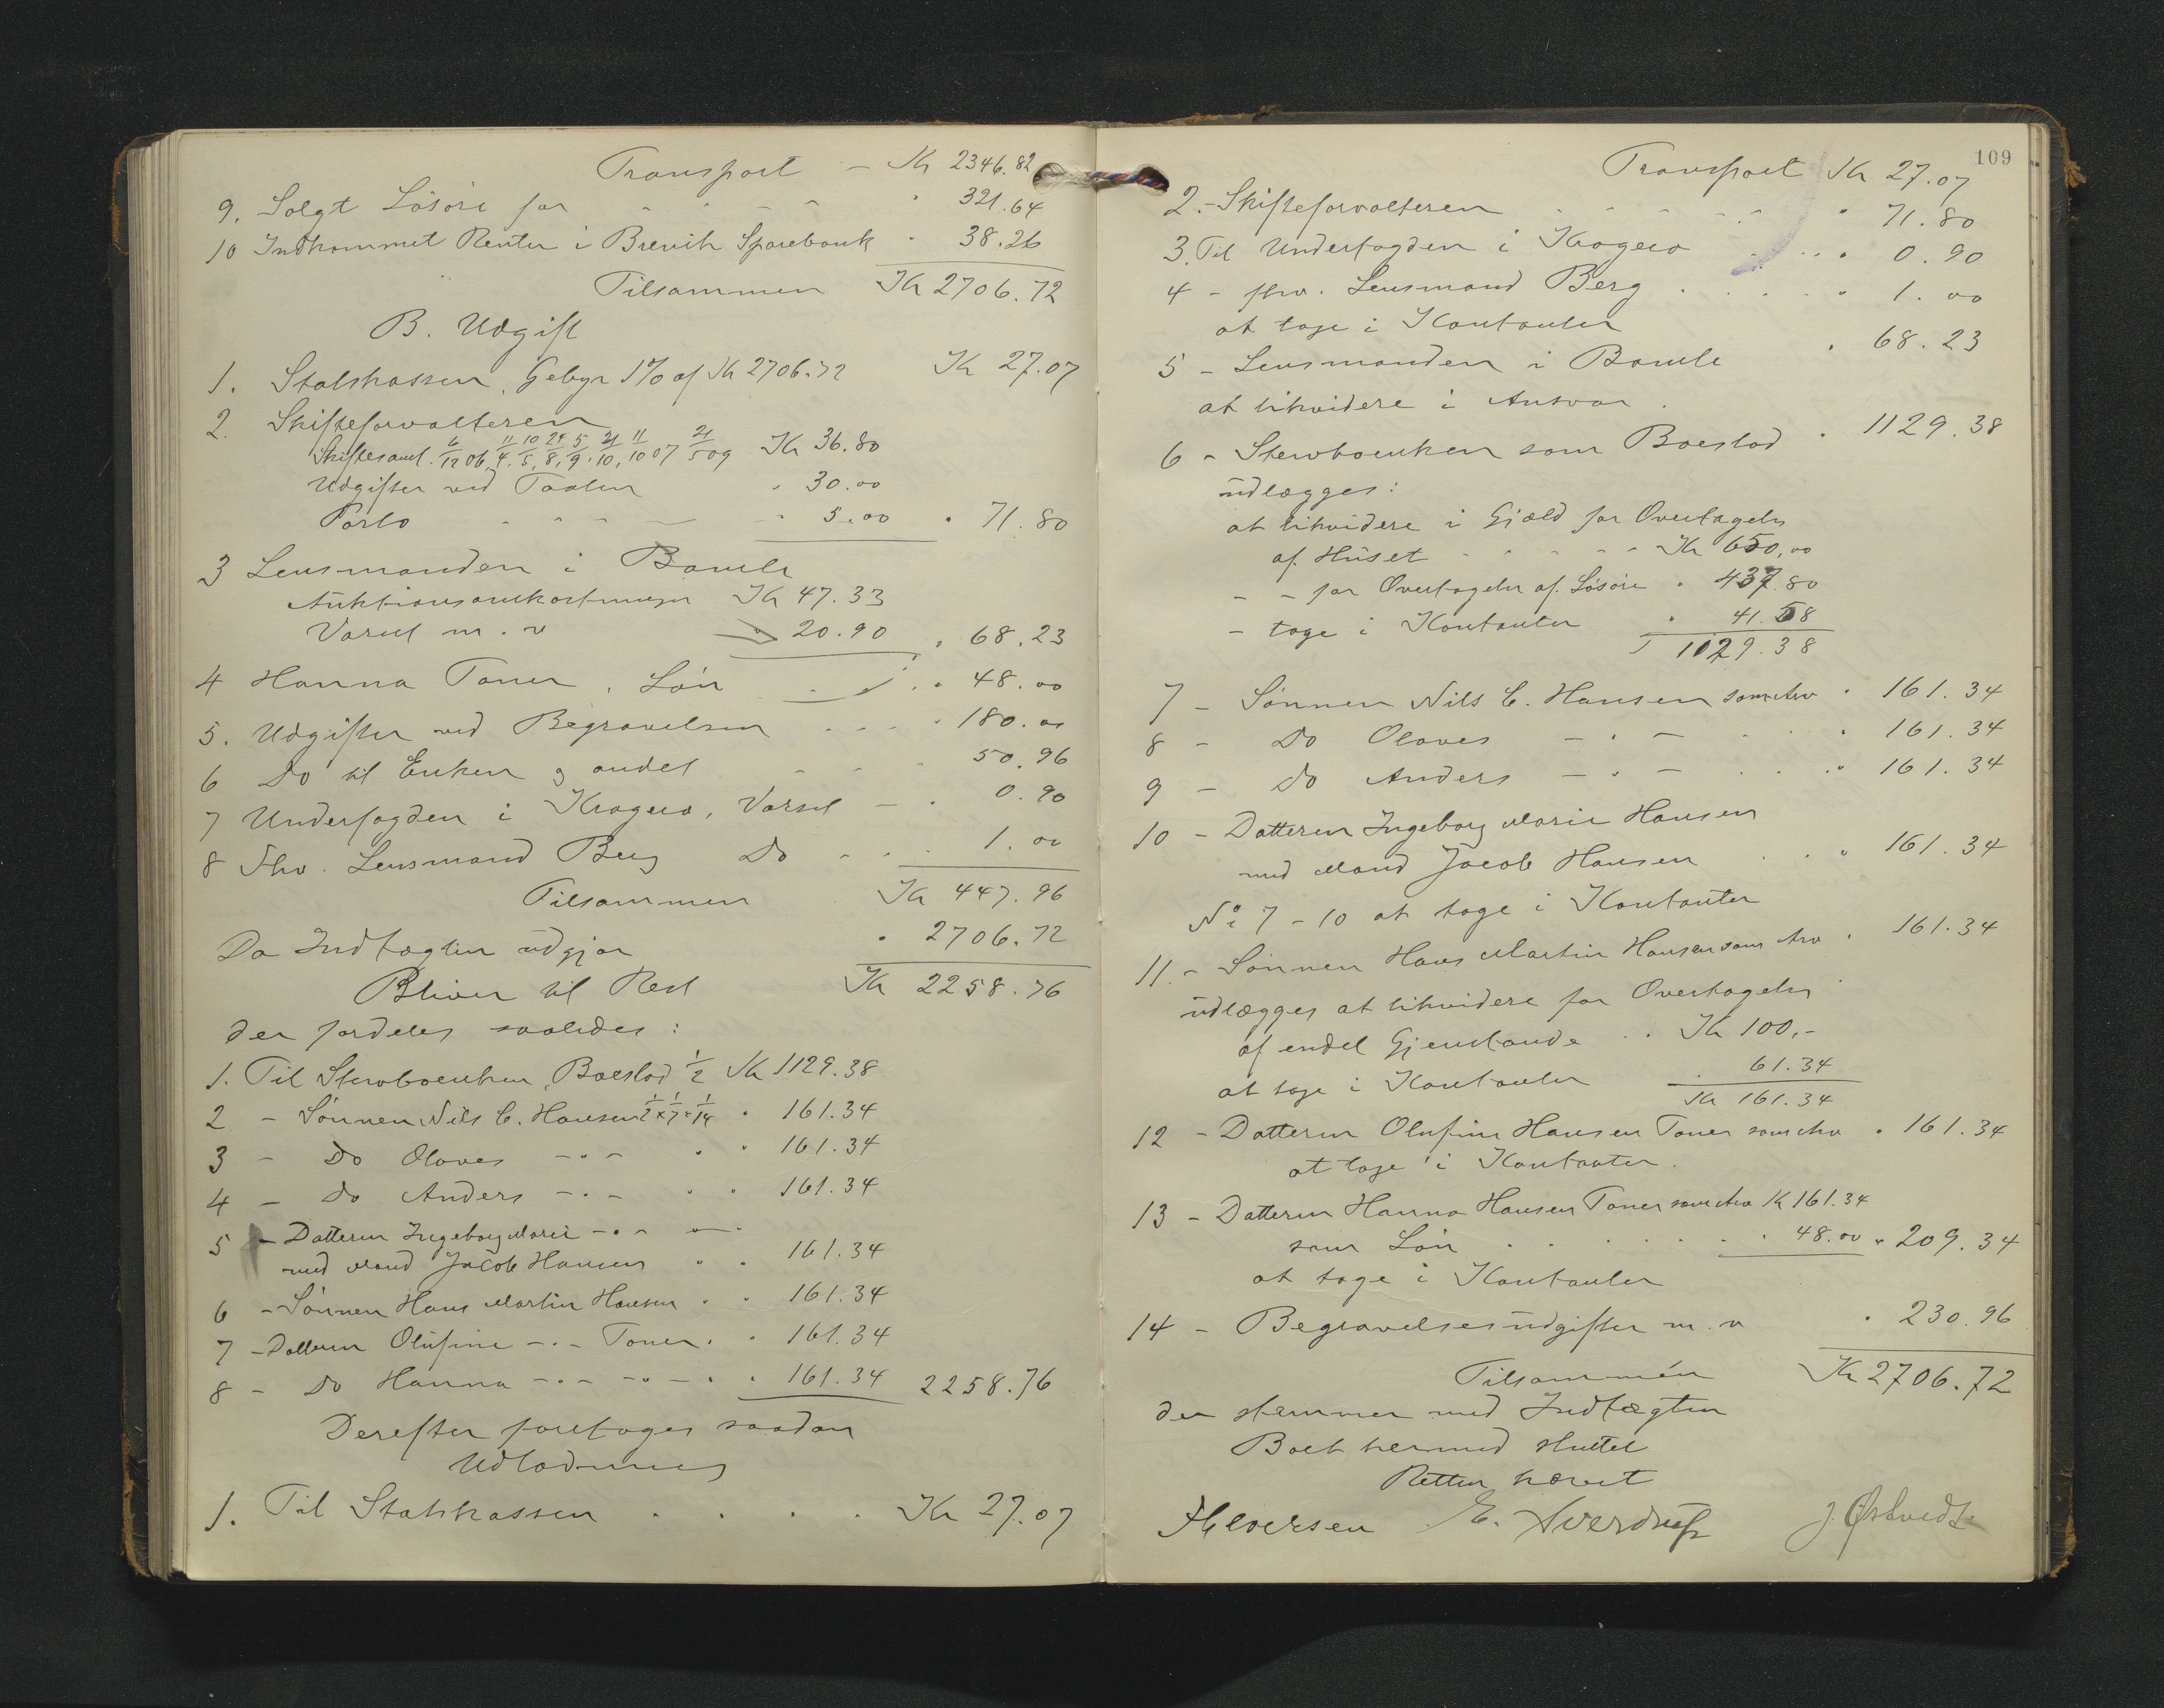 Transport - Kr 2346.82
9. Solgt Løsøre for " 321.64
10 Indkommet Renter i Brevik Sparebank " 38.26
Tilsammen Kr 2706.72
B. Udgift
1. Statskassen, Gebyr 1% af Kr 2706.72 Kr 27.07
2. Skifteforvalteren
Skiftesaml. 6/12 06, 11/4, 10/5, 24/8, 5/9, 21/10, 11/10 07 21/5 09 Kr 36.80
Udgifter ved Taxten " 30.00
Porto - - - - " 5.00 " 71.80
3 Lensmanden i Bamle
Auktionsomkostninger Kr 47.33
Varsel m.v " 20.90 " 68.23
4 Hanna Toner, Løn " 48.00
5. Udgifter ved Begravelsen " 180.00
6 Do til Enken og andet 50.96
7 Underfogden i Kragerø, Varsel - " 0.90
8 Fhv. Lensmand Berg Do - - 1.00
Tilsammen Kr 447.96
Da Indtægten udgjør " 2706.72
Bliver til Rest Kr 2258.76
der fordeles saaledes:
1. Til Stervboenken, Boeslod 1/2 Kr 1129.38
2 - Sønnen Nils C. Hansen 1/2 x 1/7 = 1/14 " 161.34
3 - Do Olaves - " - " " 161.34
4 - Do Anders - " - " " 161.34
5 - Datteren Ingeborg Marie - " -
med Mand Jacob Hansen " " 161.34
6 - Sønnen Hans Martin Hansen " " 161.34
7 - Datteren Olufine - " - Toner " " 161.34
8 - Do Hanna - " - - " - " " 161.34 2258.76
Derefter foretages saadan
Udlodning
1. Til Statskassen . . . . Kr 27.07
109
Transport Kr 27.07
2. - Skifteforvalteren " 71.80
3. Til Underfogden i Kragerø " 0.90
4 - fhv. Lensmand Berg . . . . . " 1.00
at tage i Kontanter
5 - Lensmanden i Bamle " 68.23
at likvidere i Ansvar.
6 - Stervboenken som Boeslod " 1129.38
udlægges:
at likvidere i Gjæld for Overtagelse
af Huset - - - - - Kr 650,00
- - for Overtagelse af Løsøre " 437.80
- tage i Kontanter " 41.58
1129.38
7 - Sønnen Nils C. Hansen som Arv " 161.34
8 - Do Olaves - " - " 161.34
9 - Do Anders - " - . . " 161.34
10 - Datteren Ingeborg Marie Hansen
med Mand Jacob Hansen . . " 161.34
No 7 - 10 at tage i Kontanter
11. - Sønnen Hans Martin Hansen som Arv " 161.34
udlægges at likvidere for Overtagelse
af endel Gjenstande . . Kr 100,-
at tage i Kontanter 61.34
Kr 161.34
12 - Datteren Olufine Hansen Toner som Arv " 161.34
at tage i Kontanter.
13 - Datteren Hanna Hansen Toner som Arv K 161.34
som Løn . . . . . " 48.00 " 209.34
at tage i Kontanter
14 - Begravelsesudgifter m.v " 230.96
Tilsammen Kr 2706.72
der stemmer med Indtægten
Boet hermed sluttet
Retten hævet
E. Sverdrup J. Østvedt